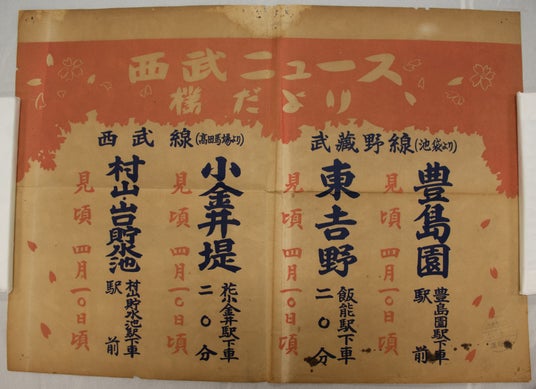 西武ニュース
櫻だより
武蔵野線(池袋より)
豊島園
豊島園駅下車
駅前
見頃 四月一〇日頃
東吉野
飯能駅下車
二〇分
見頃 四月一〇日頃
西武線(高田馬場より)
小金井堤
花小金井駅下車
二〇分
見頃 四月一〇日頃
村山貯水池
村山貯水池駅下車
駅前
見頃 四月一〇日頃